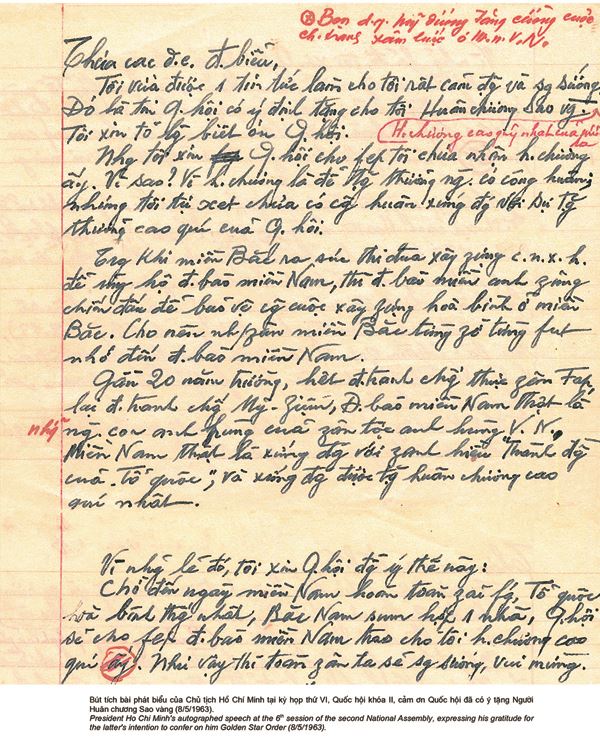 ⊗ Bọn đ.q. Mỹ đừng tăng cường cuộc
ch.tranh xâm lược ở M.N.V.N.
Thưa các đ.c. đ.biểu,
Tôi vừa được 1 tin tức làm cho tôi rất cảm đg và sg sướng
Đó là tin Q.hội có ý định tặng cho tôi Huân chương Sao vg.
Tôi xin tỏ lg biết ơn Q.hội.
H.chương cao quý nhất của nước ta
Nhg tôi xin Q.hội cho fép tôi chưa nhận h.chương
ấy. Vì sao? Vì h.chương là để thg thưởng ng. có công huân;
nhưng tôi tự xét chưa có cg huân xứng đg với sự tg
thưởng cao quí của Q.hội.
Trg khi miền Bắc ra sức thi đua xây zựng c.n.x.h.
để ủng hộ đ.bào miền Nam, thì đ.bào miền anh zũng
chiến đấu để bảo vệ cg cuộc xây zựng hoà bình ở miền
Bắc. Cho nên nh/zân miền Bắc từng zờ từng fút
nhớ đến đ.bào miền Nam.
Gần 20 năm trường, hết đ.tranh chg thực zân Fáp,
lại đ.tranh chg Mỹ-Ziệm, Đ.bào miền Nam thật là
nhg
ng. con anh hùng của zân tộc anh hùng V.N.
Miền Nam thật là xứng đg với zanh hiệu "Thành đg
của Tổ quốc", và xứng đg được tg huân chương cao
quí nhất.
Vì nhg lẽ đó, tôi xin Q.hội đg ý thế này:
Chờ đến ngày miền Nam hoàn toàn zải fg, Tổ quốc
hoà bình thg nhất, Bắc Nam sum họp 1 nhà, Q.hội
sẽ cho fép đ.bào miền Nam trao cho tôi h.chương cao
quí ấy. Như vậy thì toàn zân ta sẽ sg sướng, vui mừng.
Bút tích bài phát biểu của Chủ tịch Hồ Chí Minh tại kỳ họp thứ VI, Quốc hội khóa II, cảm ơn Quốc hội đã có ý tặng Người
Huân chương Sao vàng (8/5/1963).
President Ho Chi Minh's autographed speech at the 6th session of the second National Assembly, expressing his gratitude for
the latter's intention to confer on him Golden Star Order (8/5/1963).